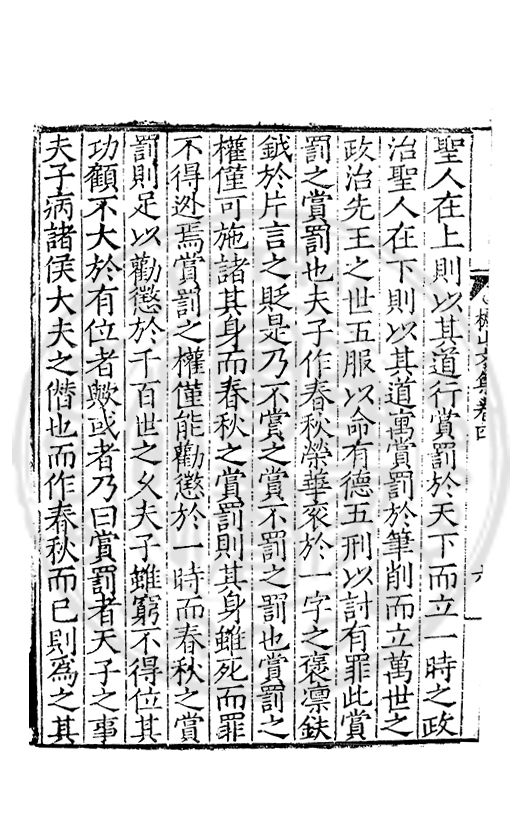 聖人在上則以其道行賞罰於天下而立一時之政
治聖人在下則以其道寓賞罰於筆削而立萬世之
政治先王之世五服以命有德五刑以討有罪此賞
罰之賞罰也夫子作春秋榮華衮於一字之褒凛鈇
鉞於片言之貶是乃不賞之賞不罰之罰也賞罰之
權僅可施諸其身而春秋之賞罰則其身雖死而罪
不得逃焉賞罰之權僅能勸懲於一時而春秋之賞
罰則足以勸懲於千百世之乆夫子雖窮不得位其
功顧不大於有位者歟或者乃曰賞罰者天子之事
夫子病諸侯大夫之僣也而作春秋而已則為之其
山文集卷四
六